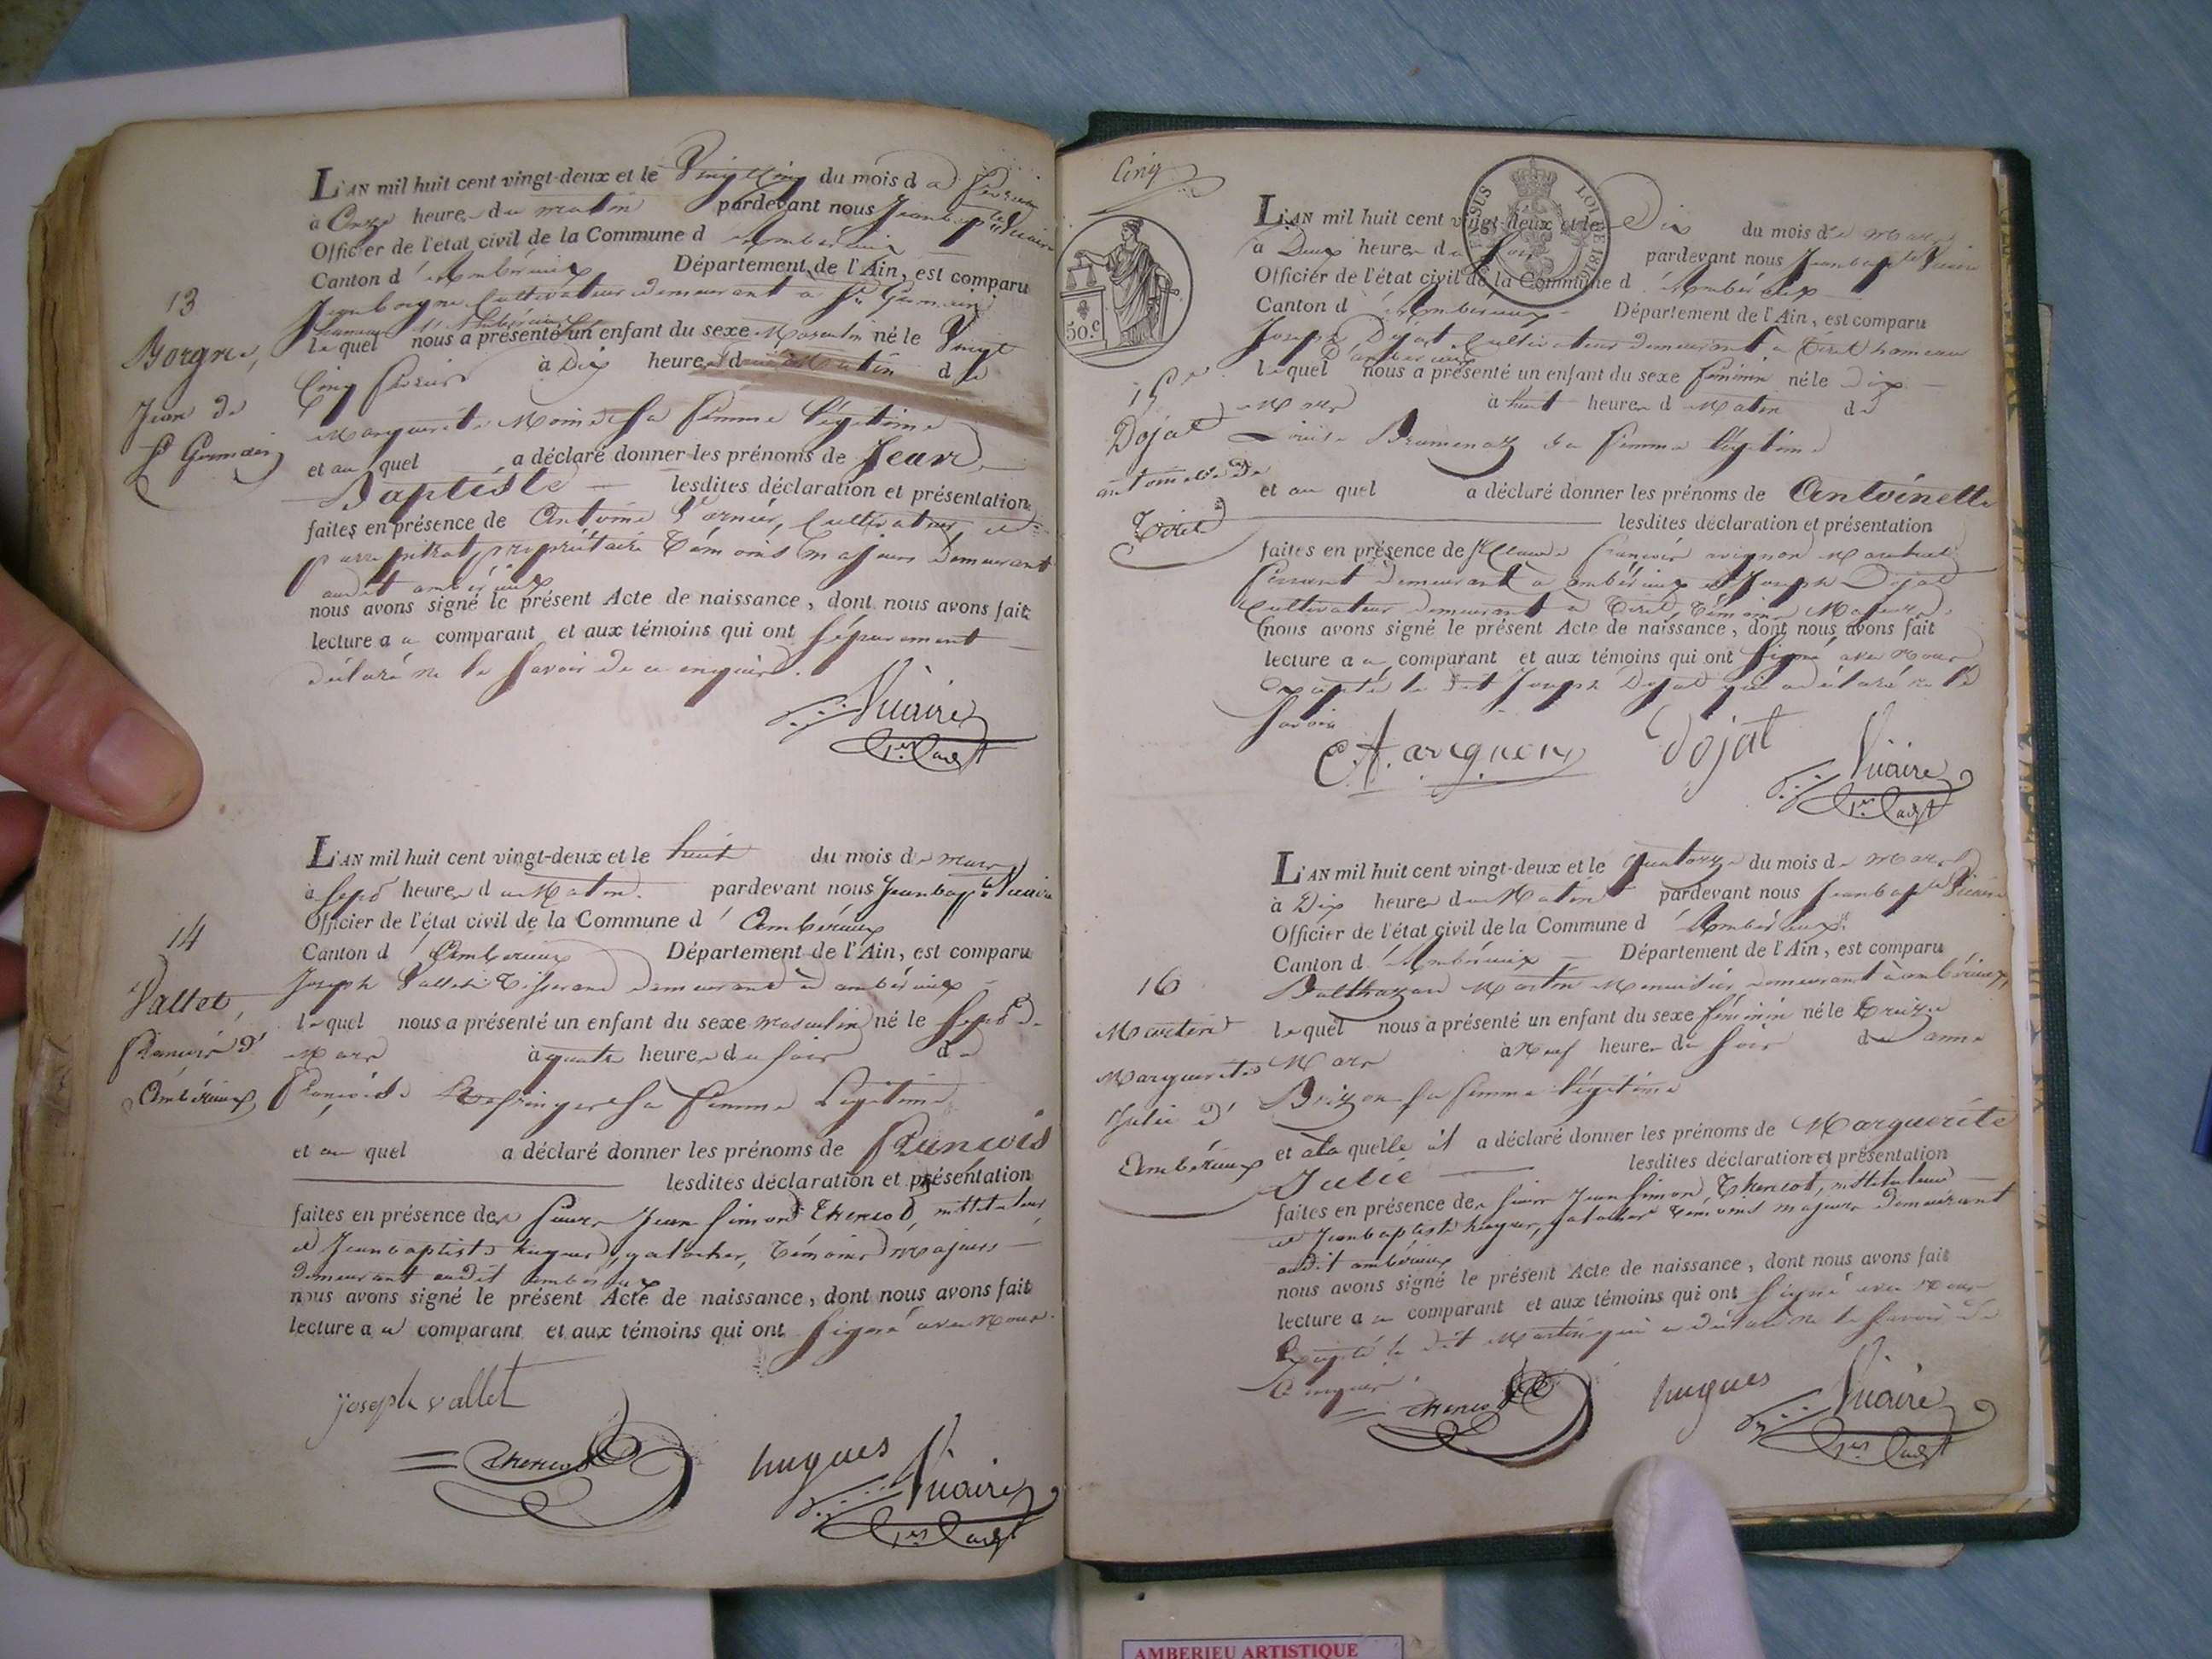 L'AN mil huit cent vingt-deux et le Vingt Cinq du mois d e fevrier
à Onze heures du matin pardevant nous Jean bapte Vicaire
Officier de l'état civil de la Commune d' ambérieux
Canton d' Ambérieux Département de l'Ain, est comparu
Jean borgne Cultivateur demeurant a St Germain
hameau d'Ambérieux
lequel nous a présenté un enfant du sexe Masculin né le Vingt
Cinq fevrier à Dix heures du Matin d e
Marguerite Moine sa femme légitime
et au quel a déclaré donner les prénoms de Jean
Baptiste lesdites déclaration et présentation
faites en présence de Antoine cultivateur et
propriétaire témoins majeurs demeurant
audit ambérieux
nous avons signé le présent Acte de naissance, dont nous avons fait
lecture au comparant et aux témoins qui ont séparement
déclaré ne le savoir de ce enquis.
Vicaire
13
Borgne,
Jean de
St Germain
L'AN mil huit cent vingt-deux et le huit du mois de mars
à sept heures du Matin pardevant nous Jean bapte Vicaire
Officier de l'état civil de la Commune d' Ambérieux
Canton d' Ambérieux Département de l'Ain, est comparu
Joseph Vallet Tisserand demeurant à ambérieux
lequel nous a présenté un enfant du sexe masculin né le sept de
Mars à quatre heures du soir de
françoise sa femme Légitime
et au quel a déclaré donner les prénoms de François
lesdites déclaration et présentation
faites en présence des sieurs Jean Simon instituteur
et Jean baptiste hugues, témoins majeurs
demeurant audit ambérieux
nous avons signé le présent Acte de naissance, dont nous avons fait
lecture au comparant et aux témoins qui ont signé avec nous.
joseph vallet
hugues
Vicaire
14
Vallet,
françois d'
Ambérieux
Cinq
50.c
LOI DE 1816
L'AN mil huit cent vingt-deux et le Dix du mois de mars
à Deux heures du soir pardevant nous Jean bapte Vicaire
Officier de l'état civil de la Commune d' Ambérieux
Canton d' Ambérieux Département de l'Ain, est comparu
Joseph Dojat Cultivateur demeurant a Tiret hameau
D'ambérieux
lequel nous a présenté un enfant du sexe féminin né le dix
Mars à huit heures d Matin de
Louise sa femme légitime
et au quel a déclaré donner les prénoms de Antoinette
lesdites déclaration et présentation
faites en présence de Sr Claude françois
demeurant a ambérieux et Joseph Dojat
cultivateur demeurant a Tiret, témoins Majeurs
nous avons signé le présent Acte de naissance, dont nous avons fait
lecture au comparant et aux témoins qui ont signé avec Nous
excepté le dit Joseph Dojat qui a déclaré ne le
savoir
Dojat
Vicaire
15
Dojat
antoinette de
Tiret
L'AN mil huit cent vingt-deux et le quatorze du mois de mars
à Dix heures du Matin pardevant nous Jean bapte Vicaire
Officier de l'état civil de la Commune d' Ambérieux
Canton d' Ambérieux Département de l'Ain, est comparu
Balthazard Martin Menuisier demeurant à ambérieux,
lequel nous a présenté un enfant du sexe féminin né le treize
Mars à Neuf heures du soir de anne
Brizon sa femme légitime
et à la quelle il a déclaré donner les prénoms de Marguerite
Julie lesdites déclaration et présentation
faites en présence des sieurs Jean Simon instituteur
et Jean baptiste hugues, témoins majeurs demeurant
audit ambérieux
nous avons signé le présent Acte de naissance, dont nous avons fait
lecture au comparant et aux témoins qui ont signé avec nous
Excepté le dit Martin qui a déclaré ne le savoir de
ce enquis.
hugues
Vicaire
16
Martin
Marguerite
Julie d'
Ambérieux
AMBERIEU ARTISTIQUE